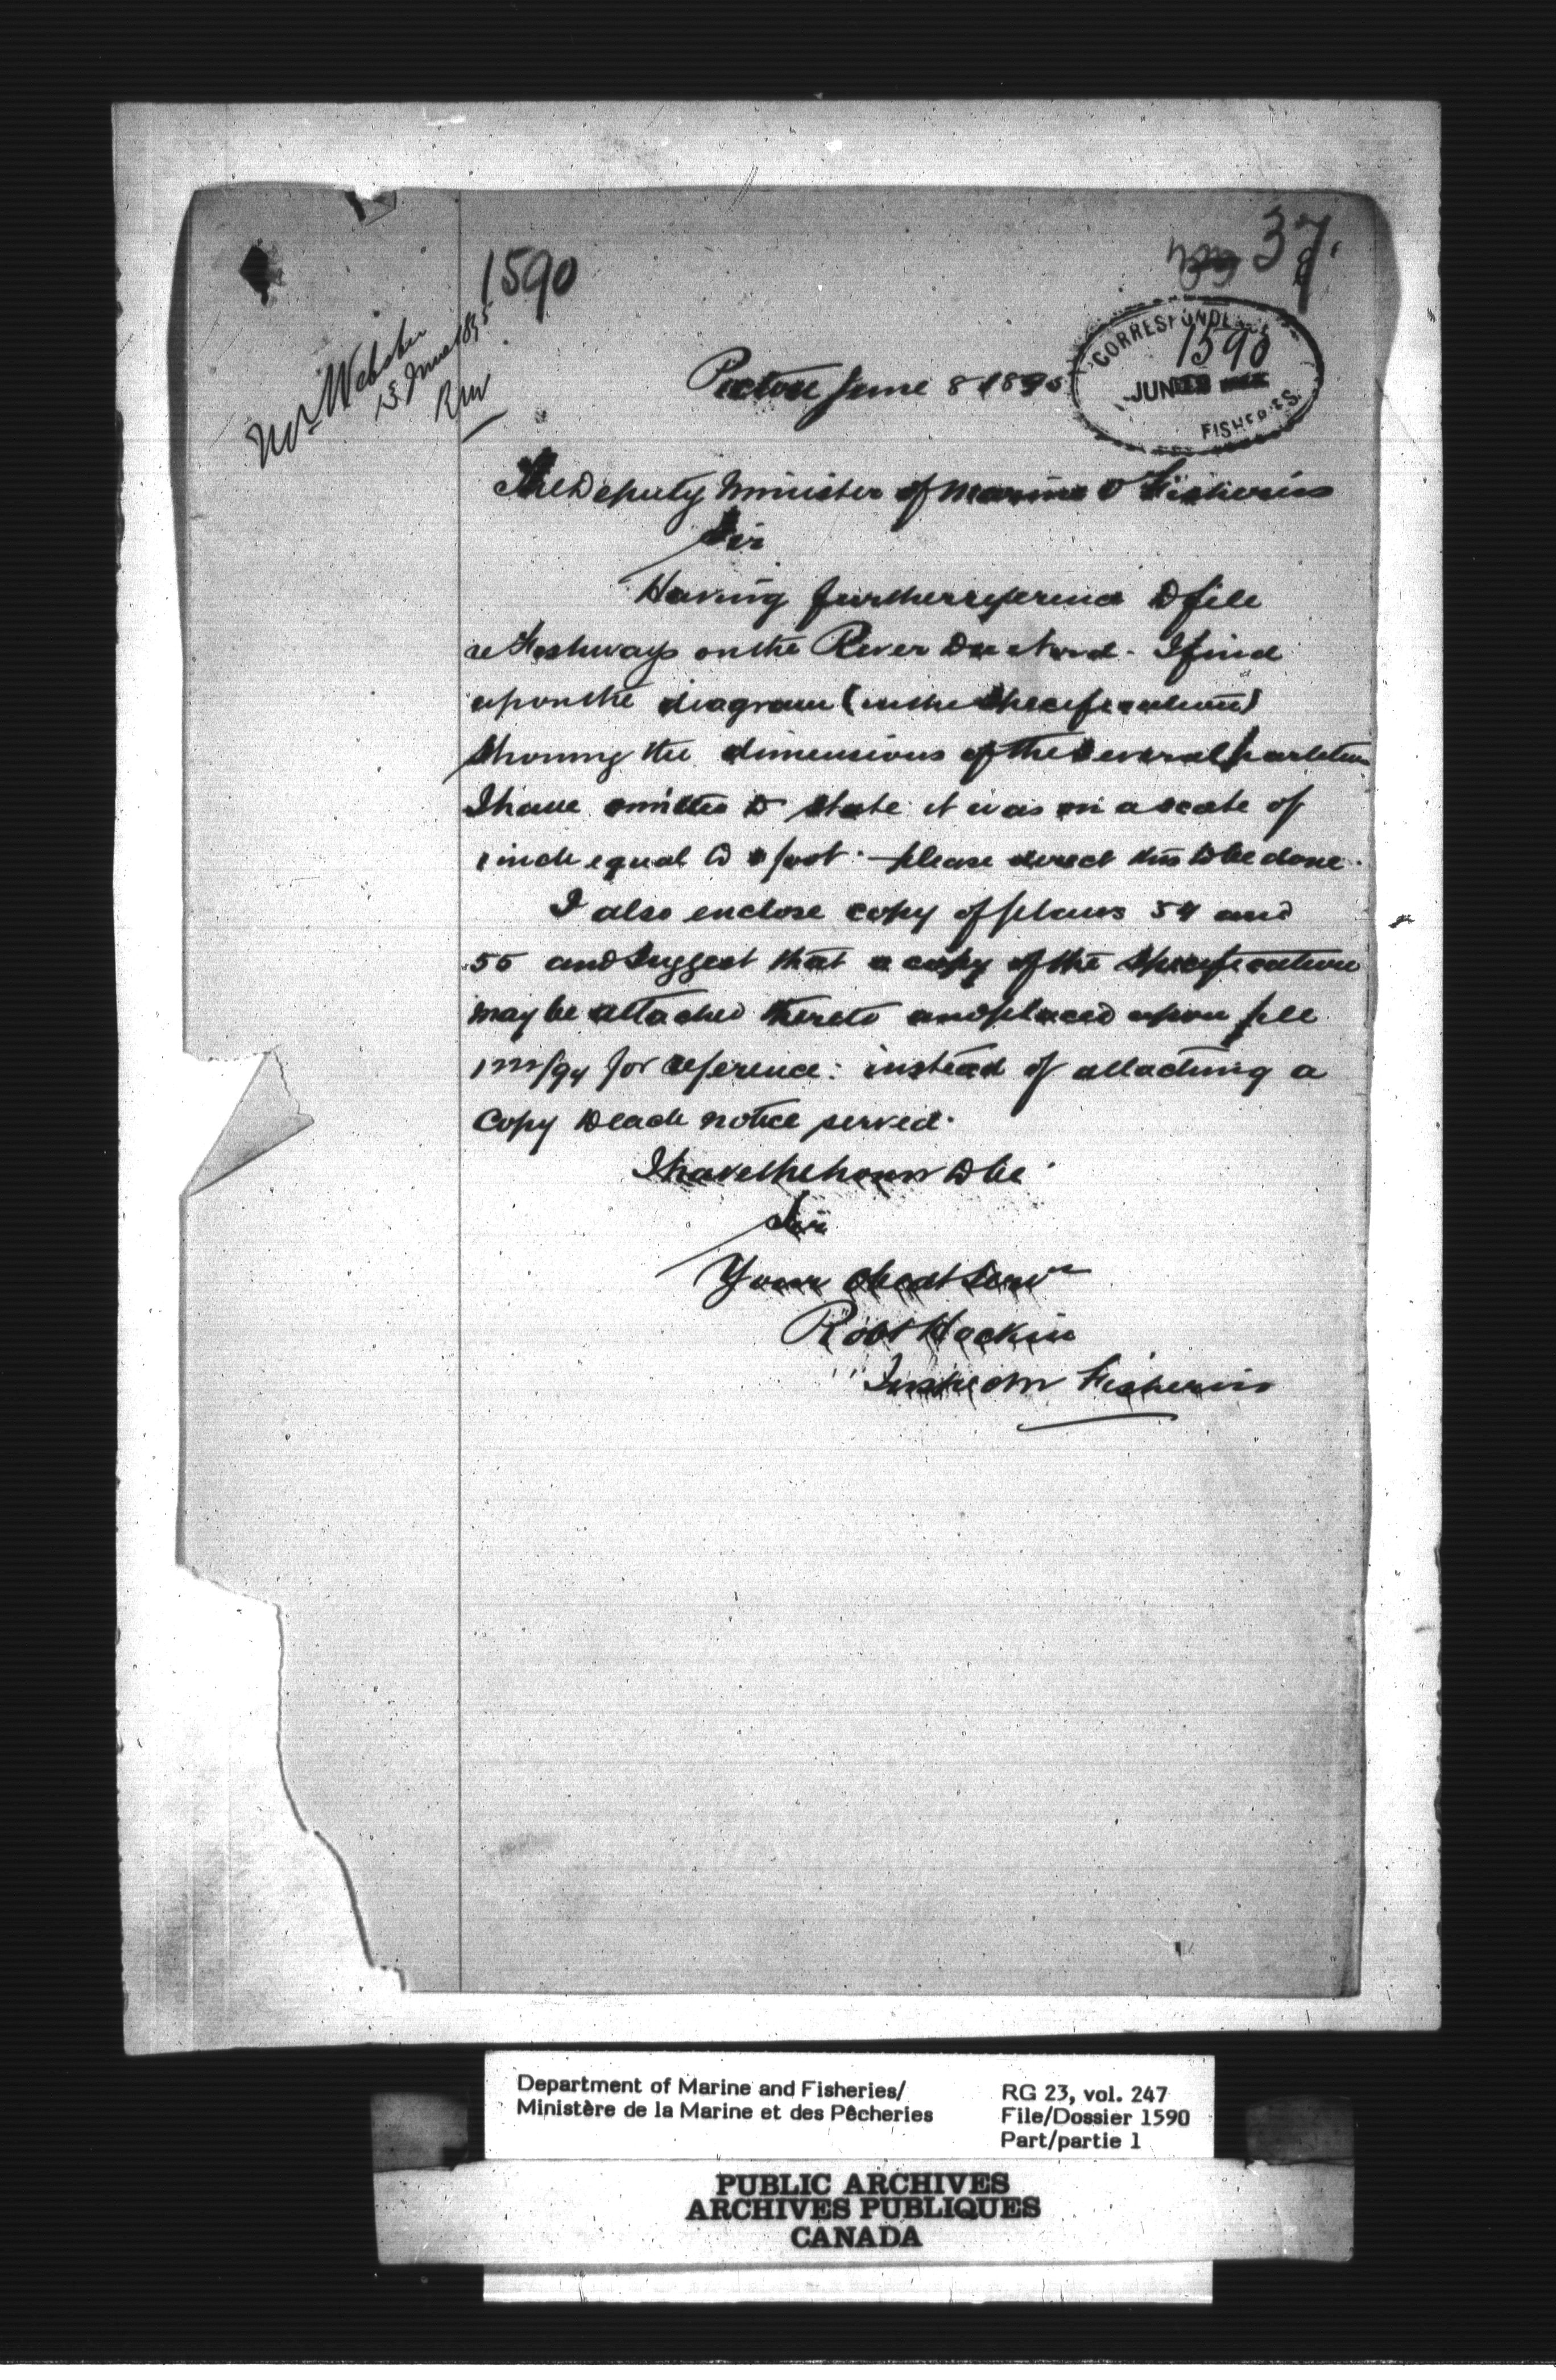 1590
37
Mr Webster
13 June 1895
RW
CORRESPONDENCE
1590
JUN
FISHERIES
Pictou June 8 1895
The Deputy Minister of Marine & Fisheries
Sir
Having further reference to file
re Fishways on the River I find
upon the diagram (in the specifications)
showing the dimensions of the several
I have omitted to state it was on a scale of
1 inch equal to a foot. please direct this to be done.
I also enclose copy of plans 54 and
55 and suggest that a copy of the specification
may be attached thereto and placed upon file
for reference: instead of attaching a
copy to each notice served.
I have the honor to be
Sir
Your obedt Servt
Robt Hockin
Inspector Fisheries
Department of Marine and Fisheries/
Ministère de la Marine et des Pêcheries
RG 23, vol. 247
File/Dossier 1590
Part/partie 1
PUBLIC ARCHIVES
ARCHIVES PUBLIQUES
CANADA